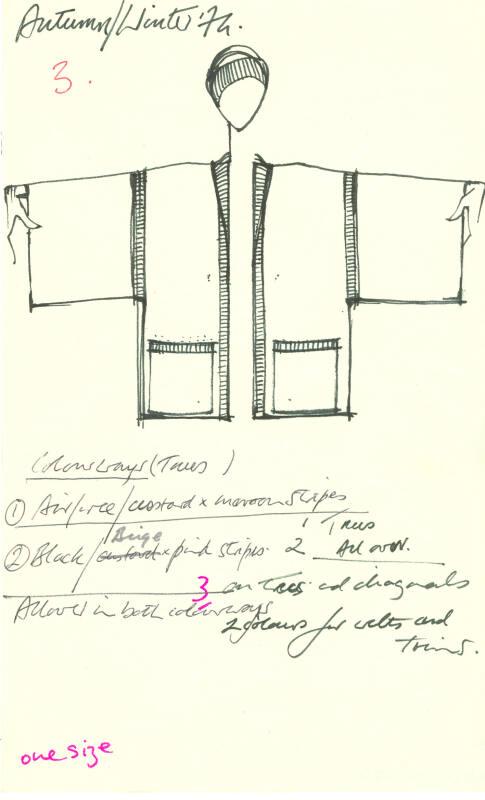 Autumn/Winter '74.
3.
Colourways (Trees)
① Airforce/custard x maroon stripes
1 Trees
② Black/ Beige custard x pink stripes. 2 All over.
3 on Trees and diagonals
Allover in both colourways
2 colours for welts and
Trims.
one size